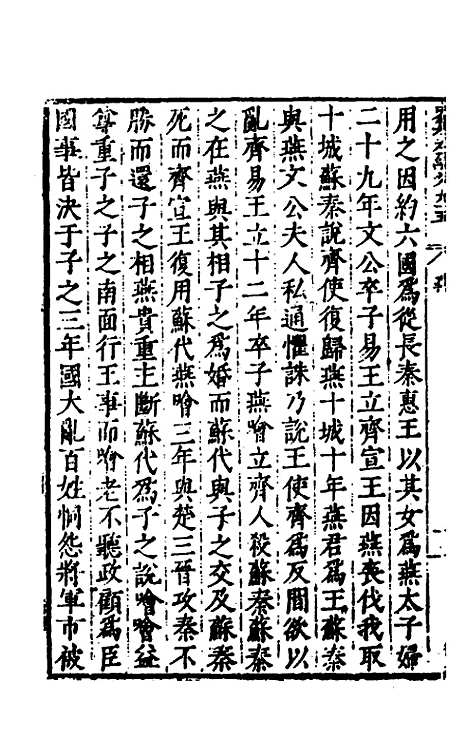 用之因約六國為從長秦惠王以其女為燕太子婦
二十九年文公卒子易王立齊宣王因燕喪伐我取
十城蘇秦說齊使復歸燕十城十年燕君為王蘇秦
與燕文公夫人私通懼誅乃說王使齊為反間欲以
亂齊易王立十二年卒子燕噲立齊人殺蘇秦蘇秦
之在燕與其相子之為婚而蘇代與子之交及蘇秦
死而齊宣王復用蘇代燕噲三年與楚三晉攻秦不
勝而還子之相燕貴重主斷蘇代為子之說噲噲益
尊重子之子之南面行王事而噲老不聽政顧為臣
國事皆決于子之三年國大亂百姓恫怨將軍市被